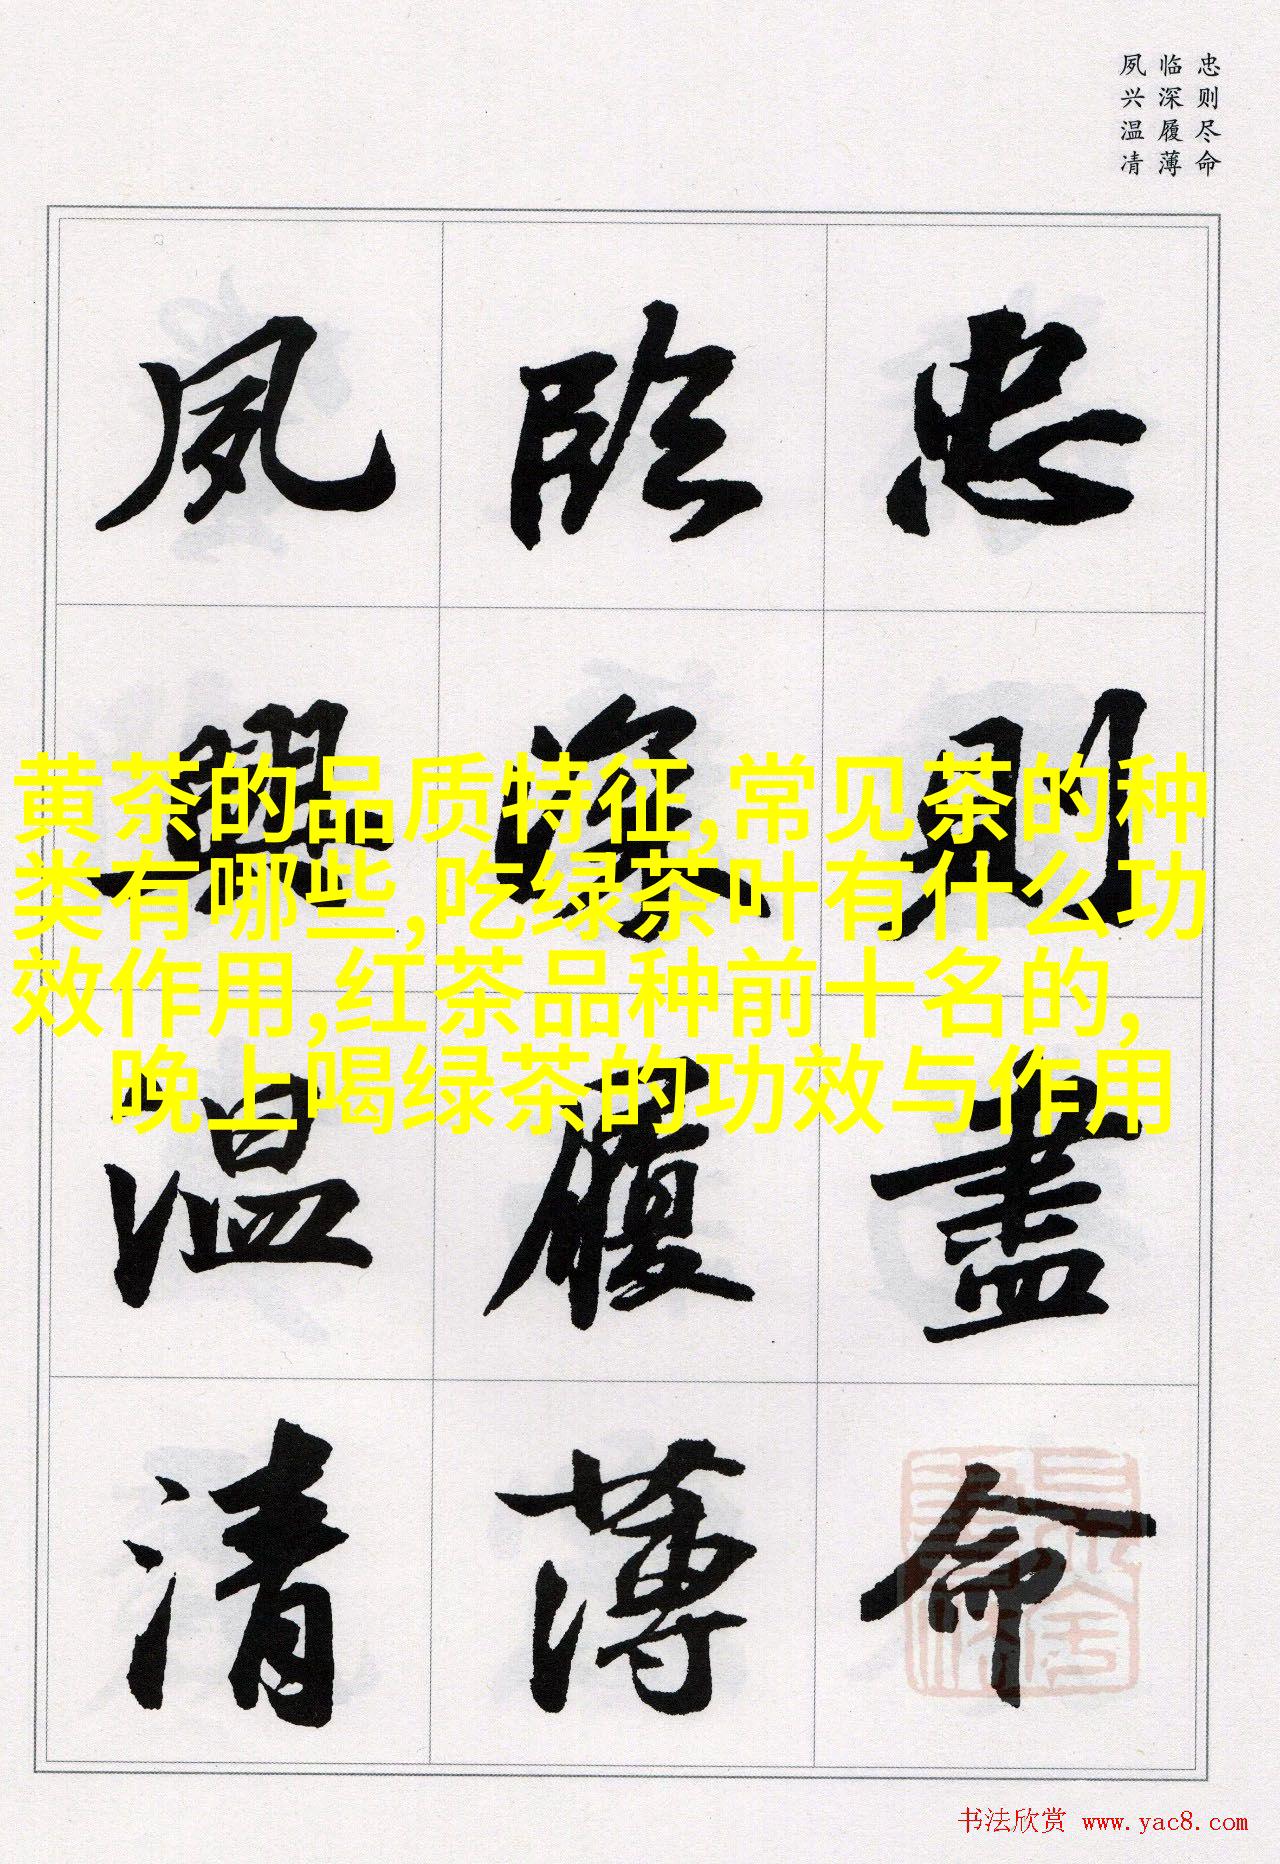 忠则尽命
临深履薄
夙兴温凊
忠則盡命
臨深履薄
夙興温清
黄茶的品质特征,常见茶的种
类有哪些,吃绿茶叶有什么功
效作用,红茶品种前十名的,
晚上喝绿茶的功效与作用
书法欣赏 www.yac8.com